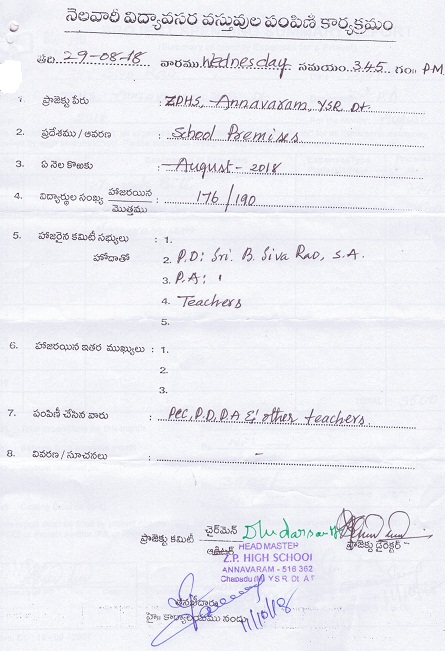 నెలవారీ విద్యావసర వస్తువుల పంపిణీ కార్యక్రమం
తేది 29-08-18 వారము Wednesday సమయం 3.45 గం॥ P.M
1. ప్రాజెక్టు పేరు : ZPHS, Annavaram, YSR Dt.
2. ప్రదేశము / ఆవరణ : School Premises
3. ఏ నెల కొఱకు : August - 2018
4. విద్యార్థుల సంఖ్య హాజరయిన / మొత్తము : 176/190
5. హాజరైన కమిటీ సభ్యులు : 1.
హోదాతో 2. P.D: Sri. B. Siva Rao, S.A.
3. P.A:
4. Teachers
5.
6. హాజరయిన ఇతర ముఖ్యులు : 1.
2.
3.
7. పంపిణీ చేసిన వారు : PEC, P.D, P.A & other teachers.
8. వివరణ / సూచనలు : -
ప్రాజెక్టు కమిటీ చైర్‌మెన్
ప్రాజెక్టు డైరెక్టర్
HEAD MASTER
Z.P. HIGH SCHOOL
ANNAVARAM - 516 362
Chapadu (M) Y S R. Dt. A.P
11/10/18